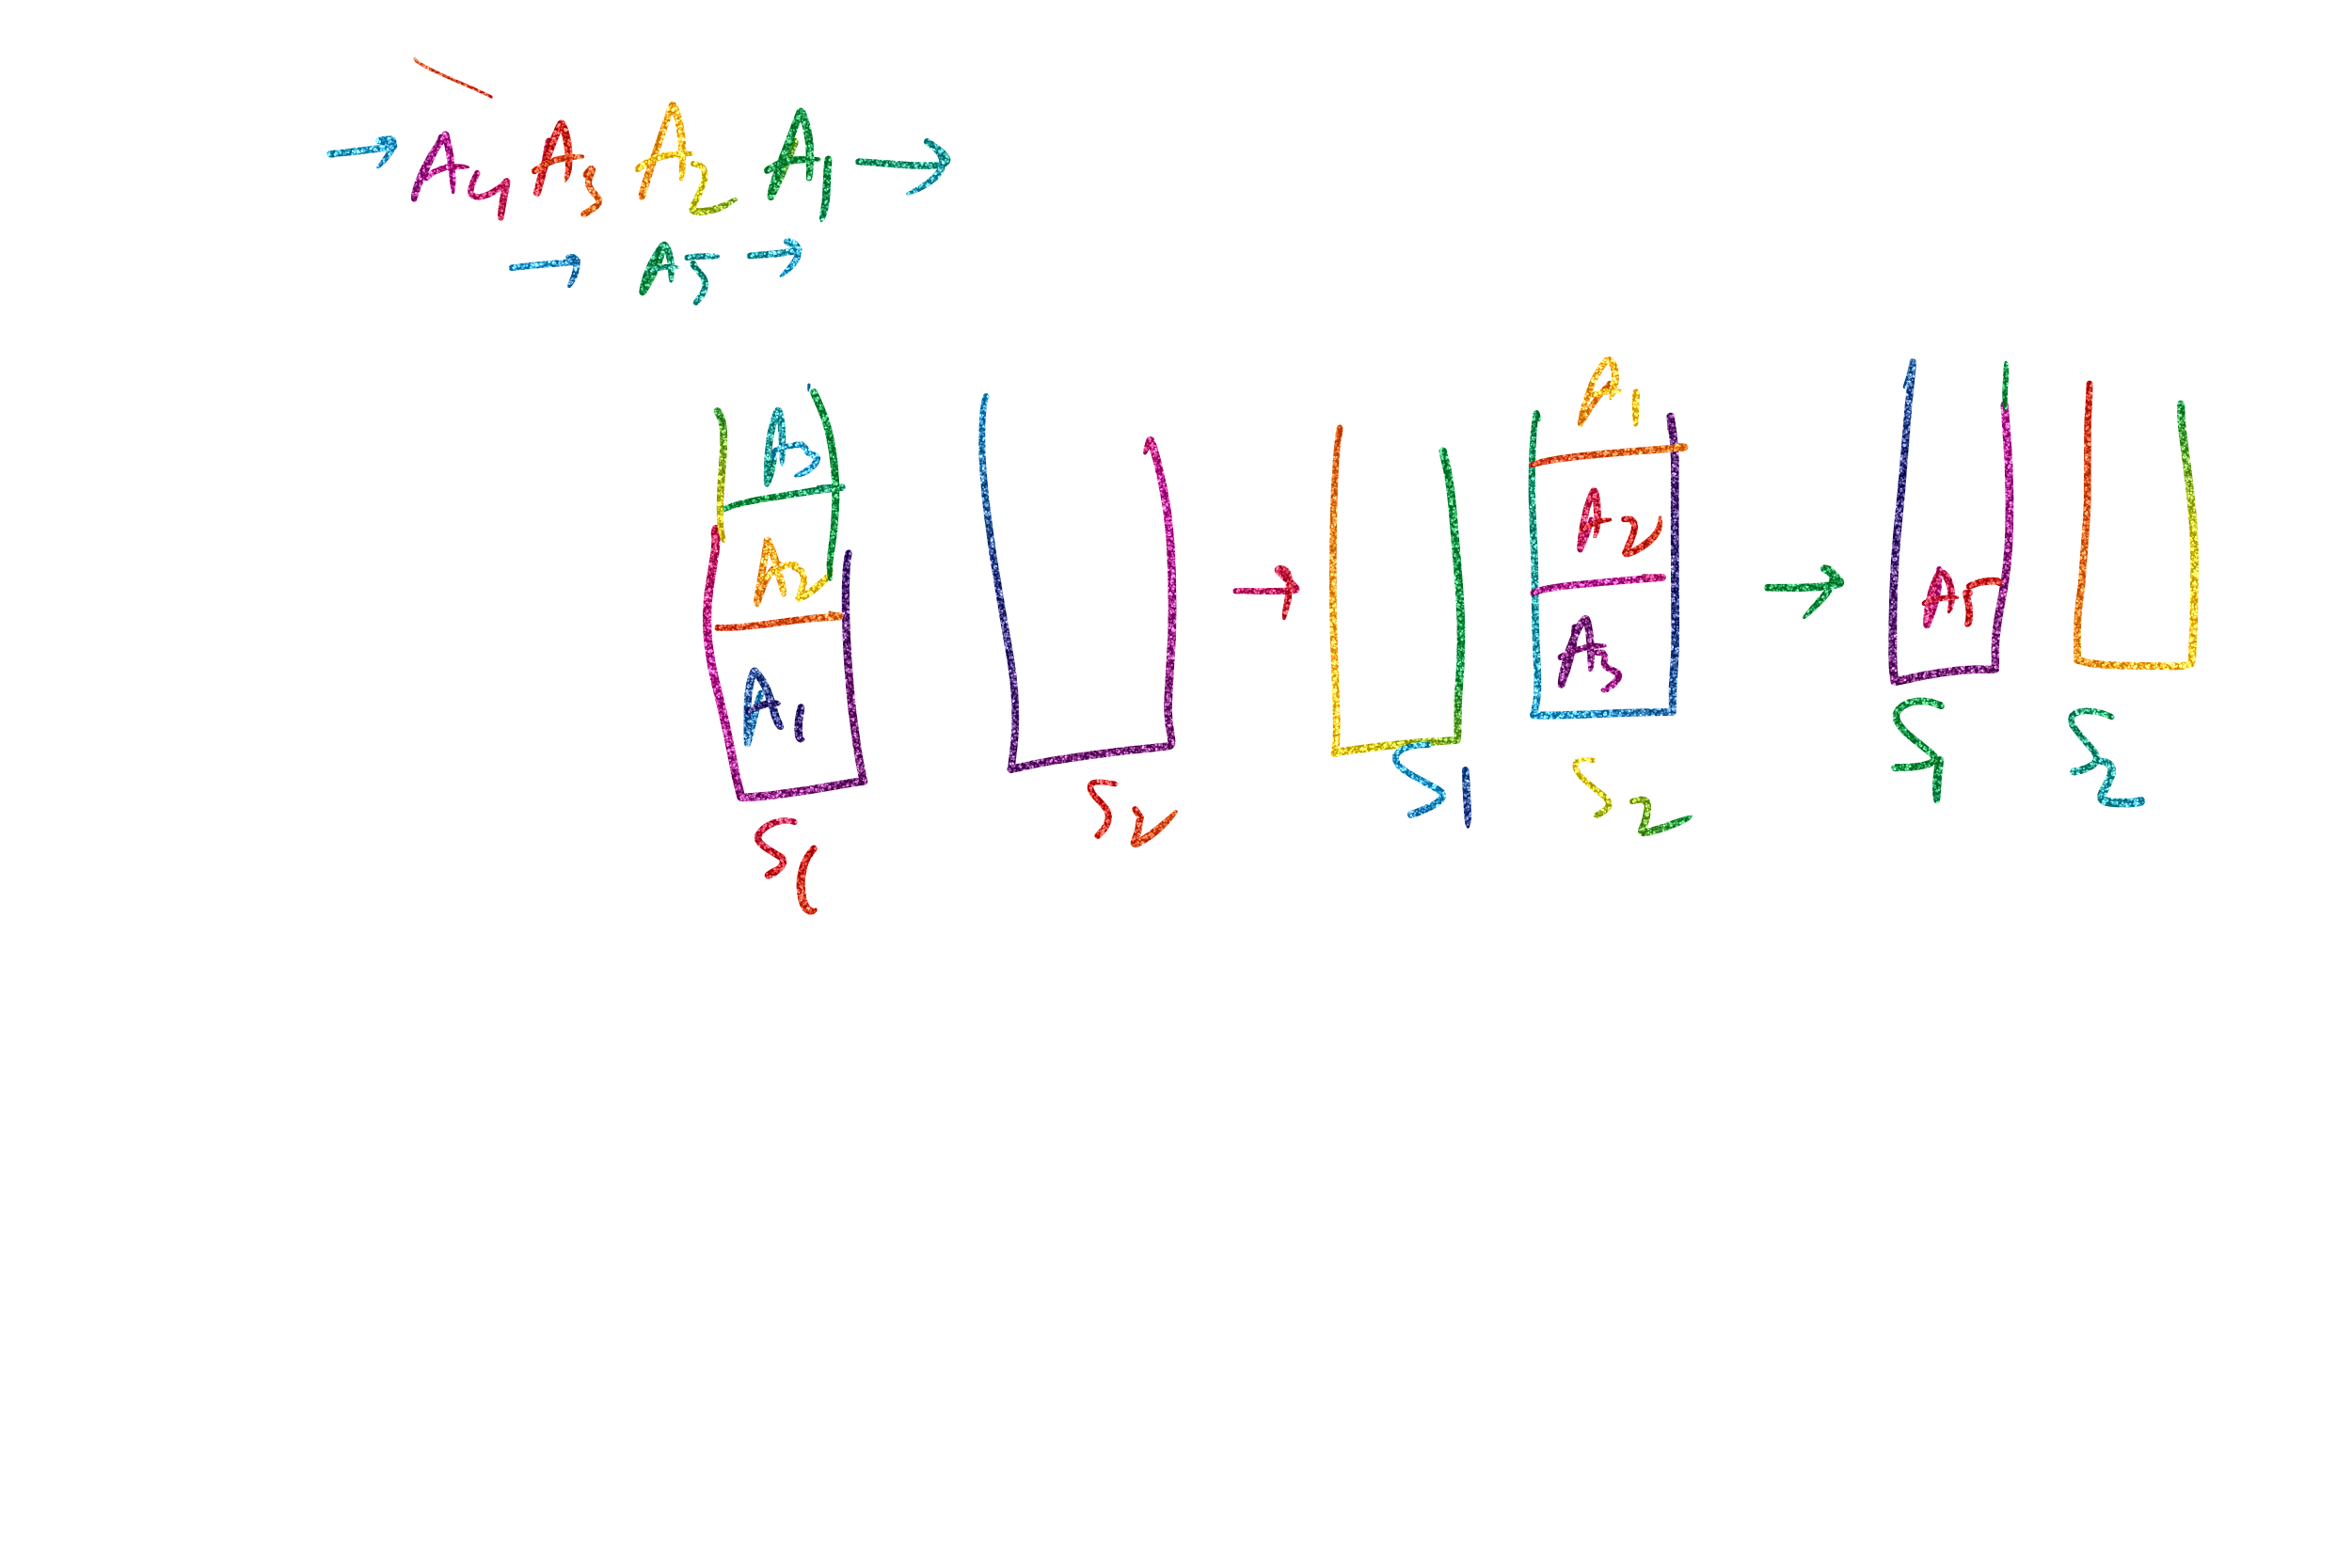 → A4 A3 A2 A1 →
→ A5 →
A3
A2
A1
S1
S2
→
S1
A1
A2
A3
S2
→
A5
S1
S2